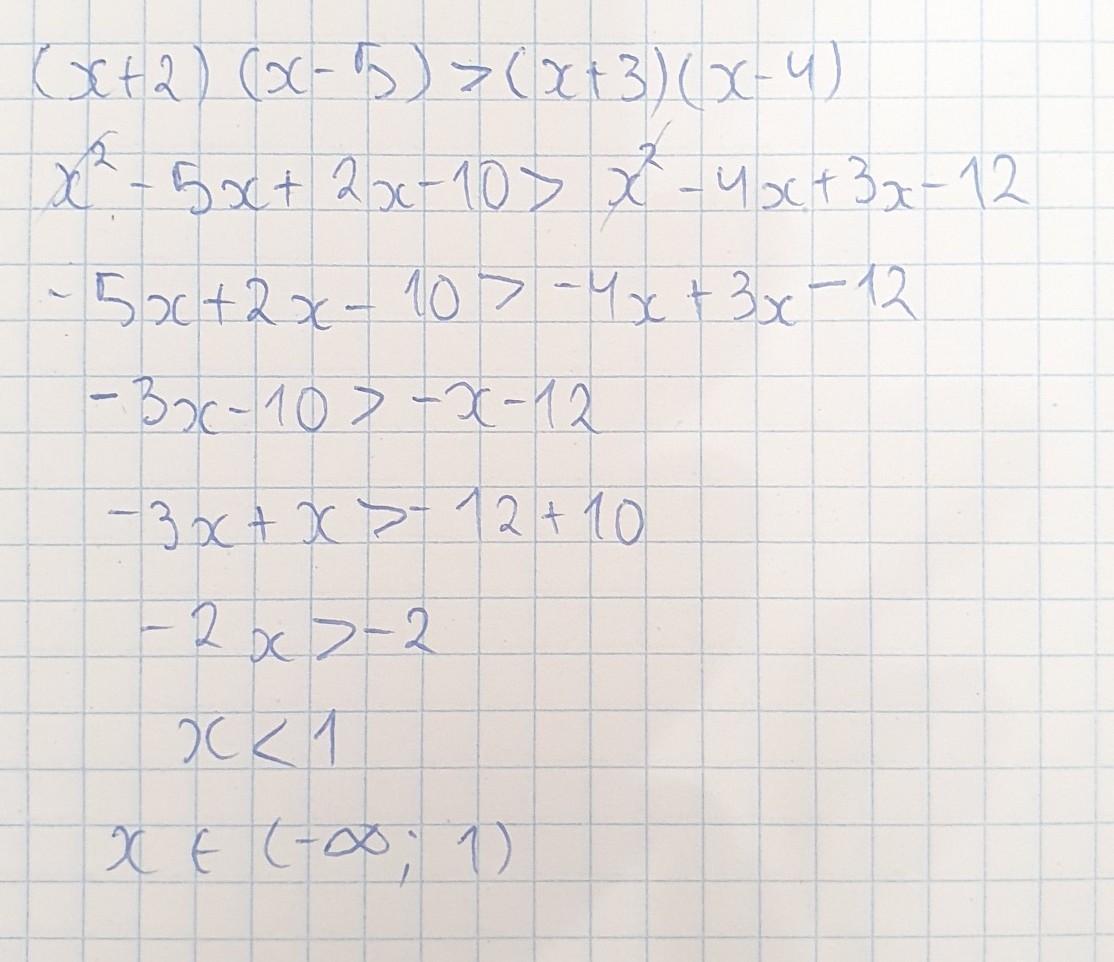 (x+2)(x-5)>(x+3)(x-4)
x²-5x+2x-10>x²-4x+3x-12
-5x+2x-10>-4x+3x-12
-3x-10>-x-12
-3x+x>-12+10
-2x>-2
x<1
x∈(-∞;1)